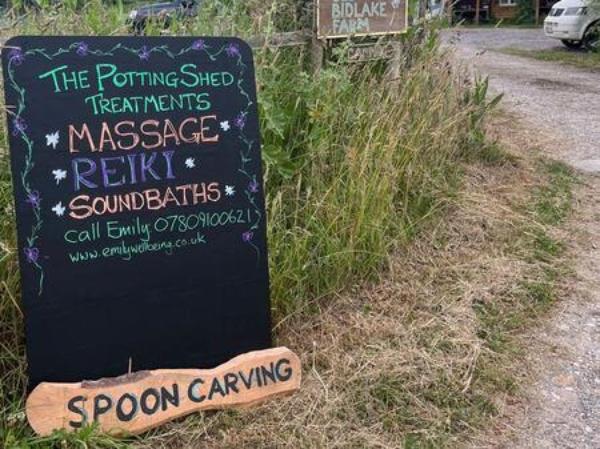 BIDLAKE
FARM
THE POTTING SHED
TREATMENTS
MASSAGE
REIKI
SOUNDBATHS
Call Emily: 07809100621
www.emilywellbeing.co.uk
SPOON CARVING